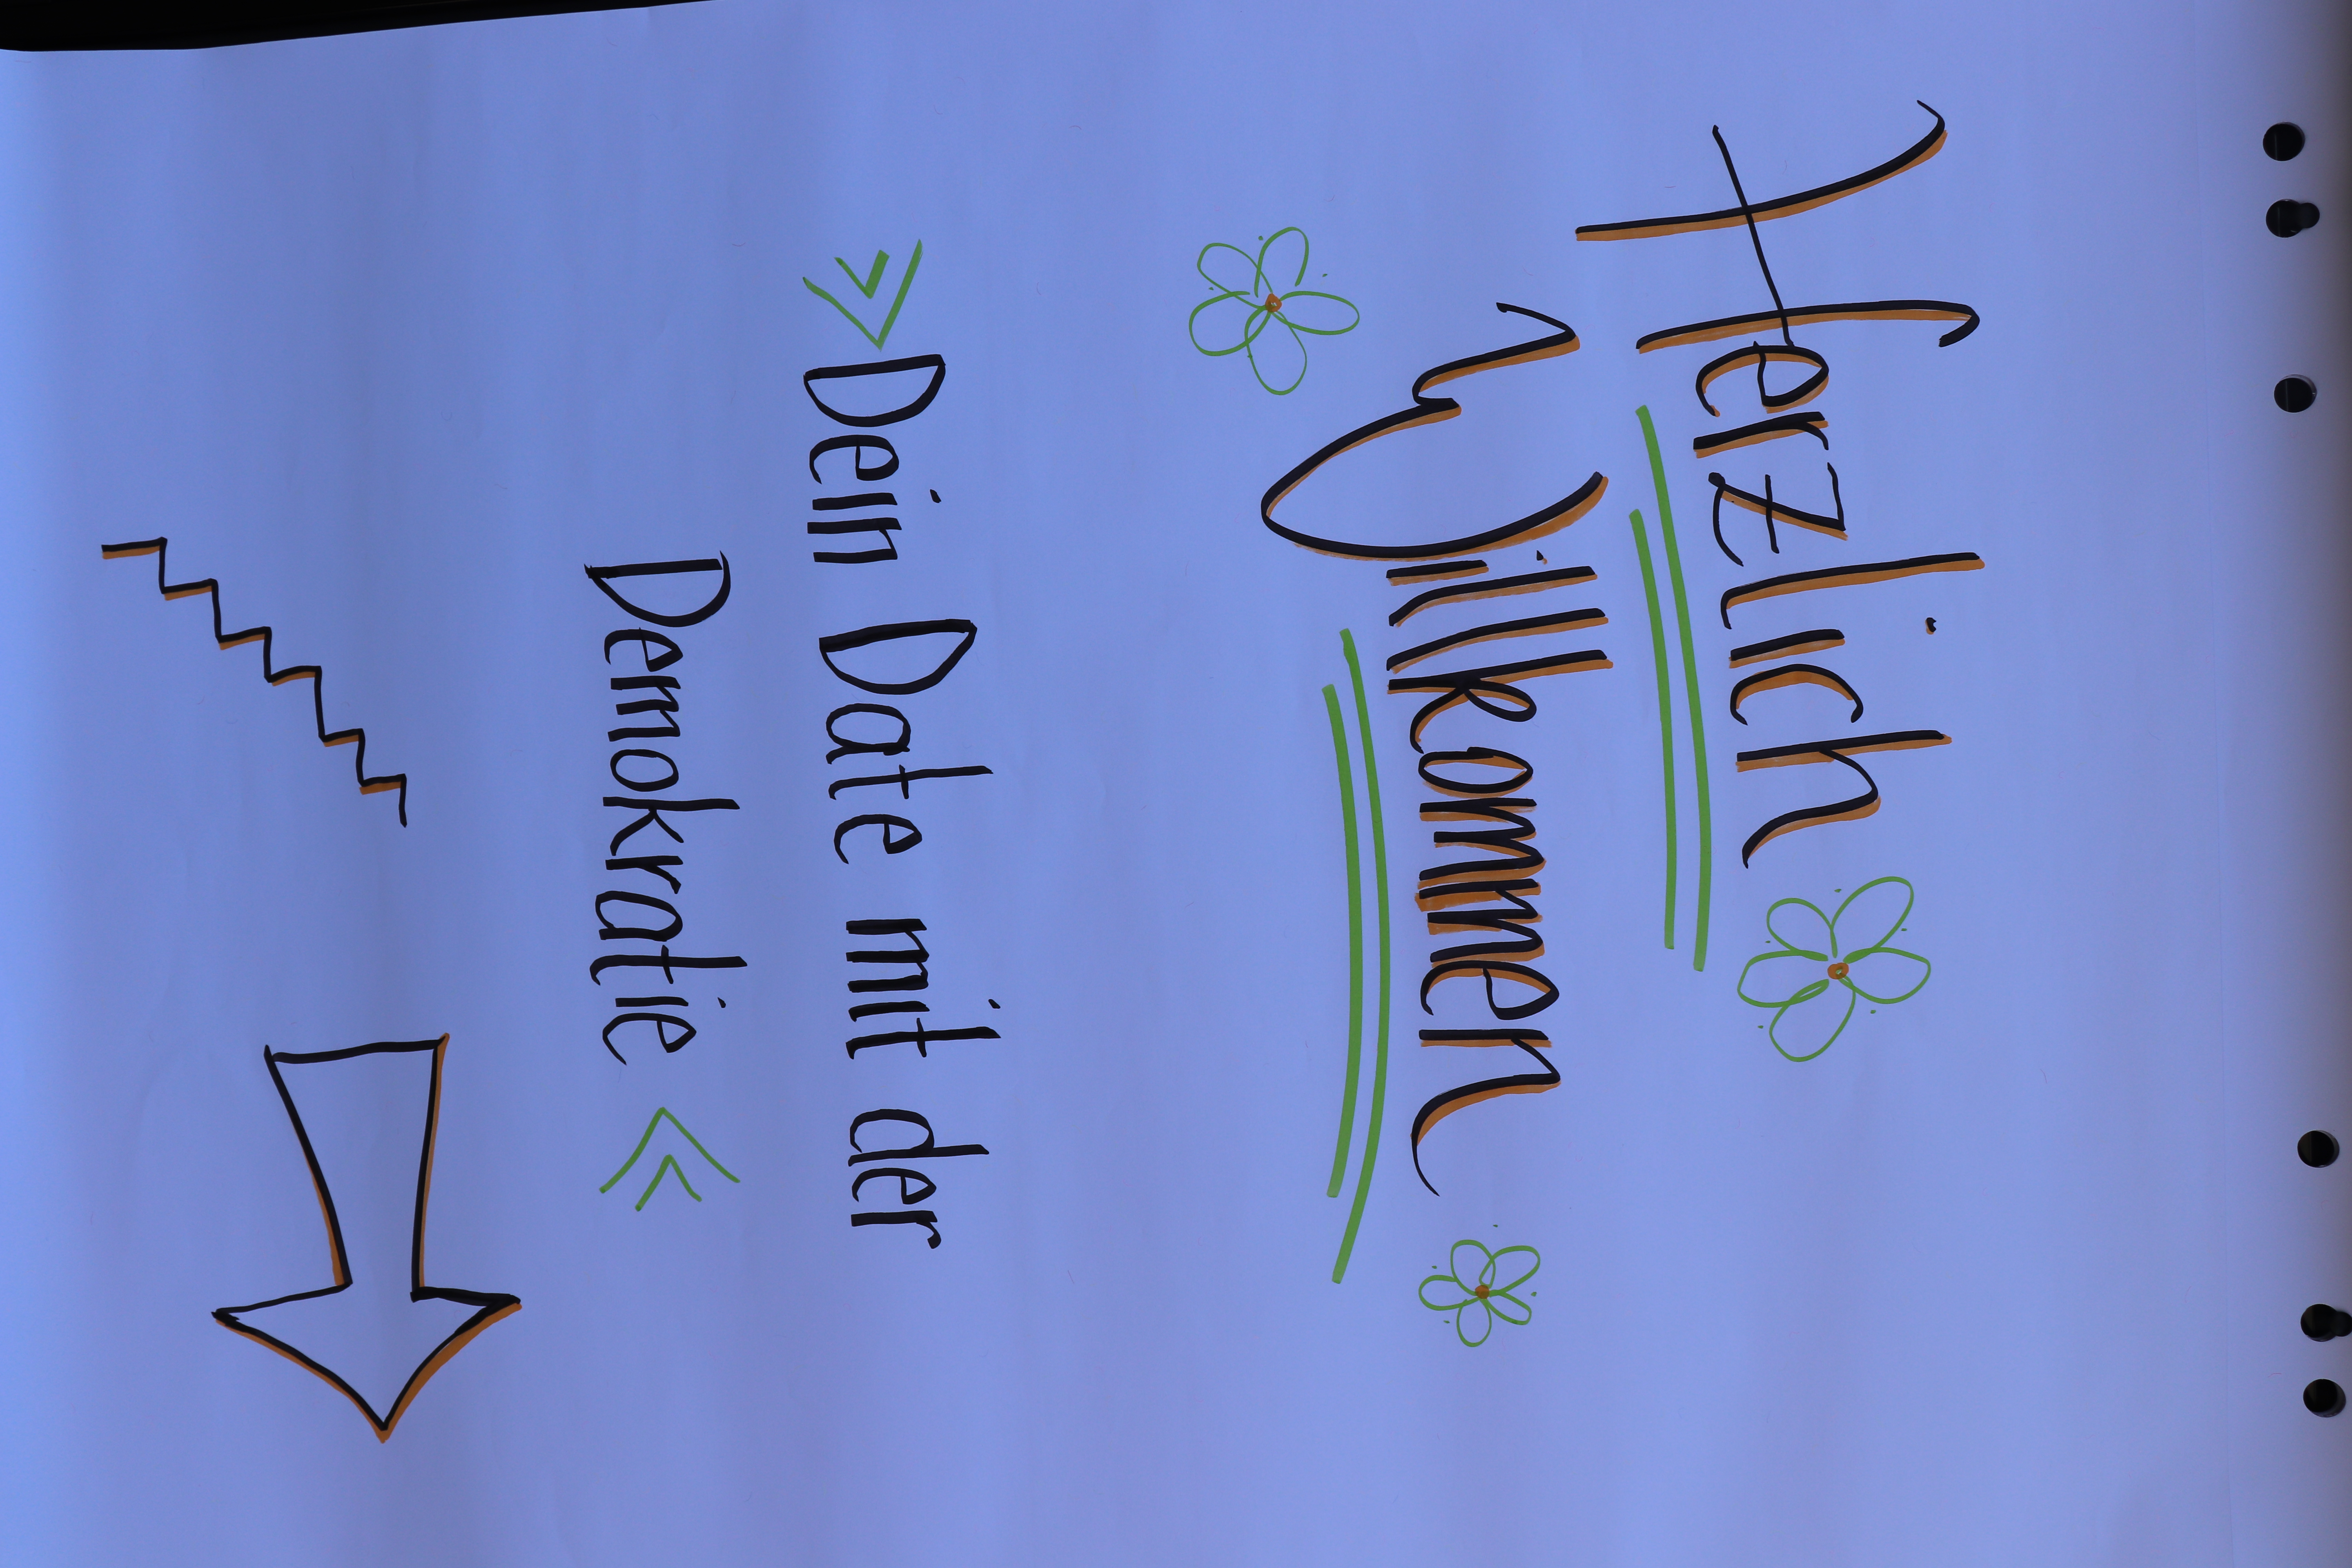 Herzlich
Willkommen
» Dein Date mit der
Demokratie «